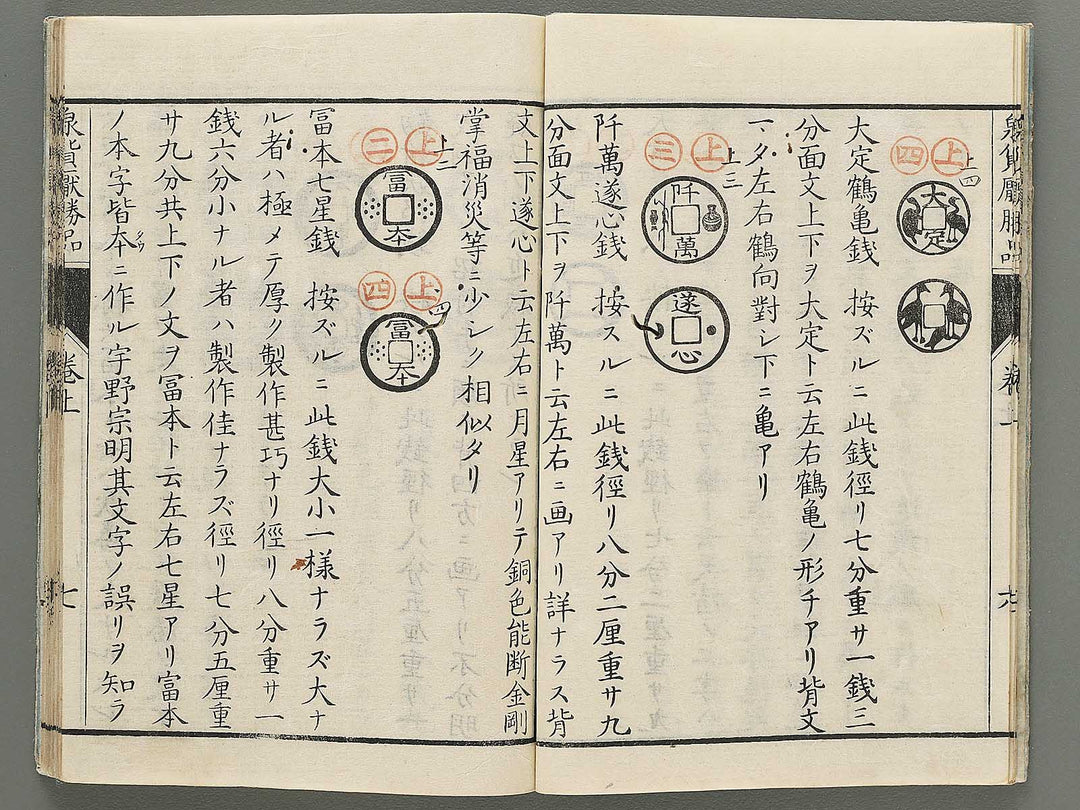 上四
上
四
大定
大定鶴亀銭 按ズルニ此銭徑リ七分重サ一銭三
分面文上下ヲ大定ト云左右鶴亀ノ形チアリ背文
一ハタ左右鶴向對シ下ニ亀アリ
上三
上
三
阡萬
遂心
阡萬遂心銭 按スルニ此銭徑リ八分二厘重サ九
分面文上下ヲ阡萬ト云左右ニ画アリ詳ナラス背
文上下遂心ト云左右ニ月星アリテ銅色能断金剛
掌福消災等ニ少シク相似タリ
上二
上
二
冨本
上
四
冨本
冨本七星銭 按ズルニ此銭大小一様ナラズ大ナ
ル者ハ極メテ厚ク製作甚巧ナリ徑リ八分重サ一
銭六分小ナル者ハ製作佳ナラズ徑リ七分五厘重
サ九分共上下ノ文ヲ冨本ト云左右七星アリ富本
ノ本字皆夲ニ作ル宇野宗明其文字ノ誤リヲ知ラ
泉貨厭勝品 卷上 七